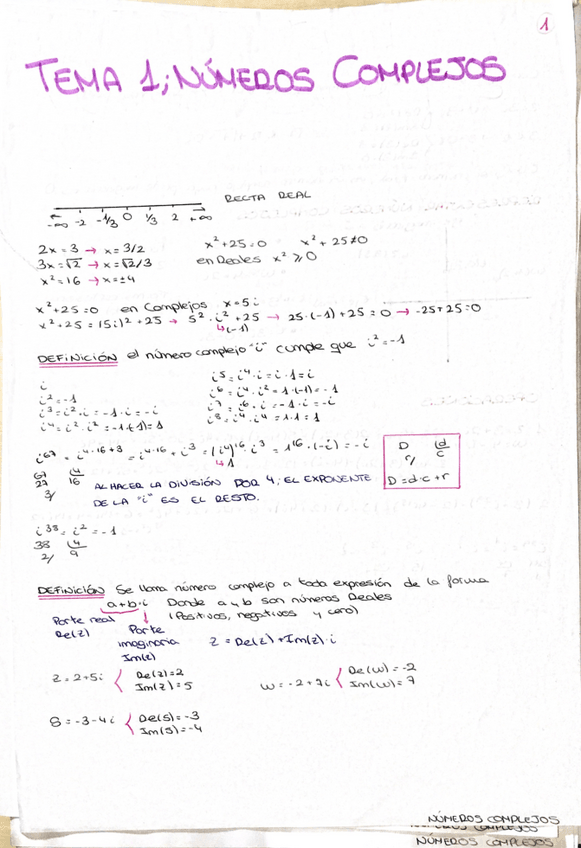 1
TEMA 1; NÚMEROS COMPLEJOS
RECTA REAL
-∞ -2 -1/3 0 1/3 2 +∞
2x = 3 → x = 3/2
3x = √2 → x = √2/3
x² = 16 → x = ±4
x² + 25 = 0 x² + 25 ≠ 0
en Reales x² ≥ 0
x² + 25 = 0 en Complejos x = 5i
x² + 25 = (5i)² + 25 → 5² · i² + 25 → 25 · (-1) + 25 = 0 → -25 + 25 = 0
↳ (-1)
DEFINICIÓN el número complejo "i" cumple que i² = -1
i
i² = -1
i³ = i² · i = -1 · i = -i
i⁴ = i² · i² = -1 · (-1) = 1
i⁵ = i⁴ · i = 1 · i = i
i⁶ = i⁴ · i² = 1 · (-1) = -1
i⁷ = i⁶ · i = -1 · i = -i
i⁸ = i⁴ · i⁴ = 1 · 1 = 1
i⁶⁷ = i⁴·¹⁶⁺³ = i⁴·¹⁶ · i³ = (i⁴)¹⁶ · i³ = 1¹⁶ · (-i) = -i
↳ 1
67 4
27 16
3/
AL HACER LA DIVISIÓN POR 4; EL EXPONENTE
DE LA "i" ES EL RESTO.
D d
r/ c
D = d · c + r
i³⁸ = i² = -1
38 4
2/ 9
DEFINICIÓN Se llama número complejo a toda expresión de la forma
a + b · i Donde a y b son números Reales
(Positivos, negativos y cero)
Parte real
Re(z)
Parte
imaginaria
Im(z)
z = Re(z) + Im(z) · i
z = 2 + 5i
Re(z) = 2
Im(z) = 5
w = -2 + 7i
Re(w) = -2
Im(w) = 7
S = -3 - 4i
Re(S) = -3
Im(S) = -4
NÚMEROS COMPLEJOS
NÚMEROS COMPLEJOS
NÚMEROS COMPLEJOS